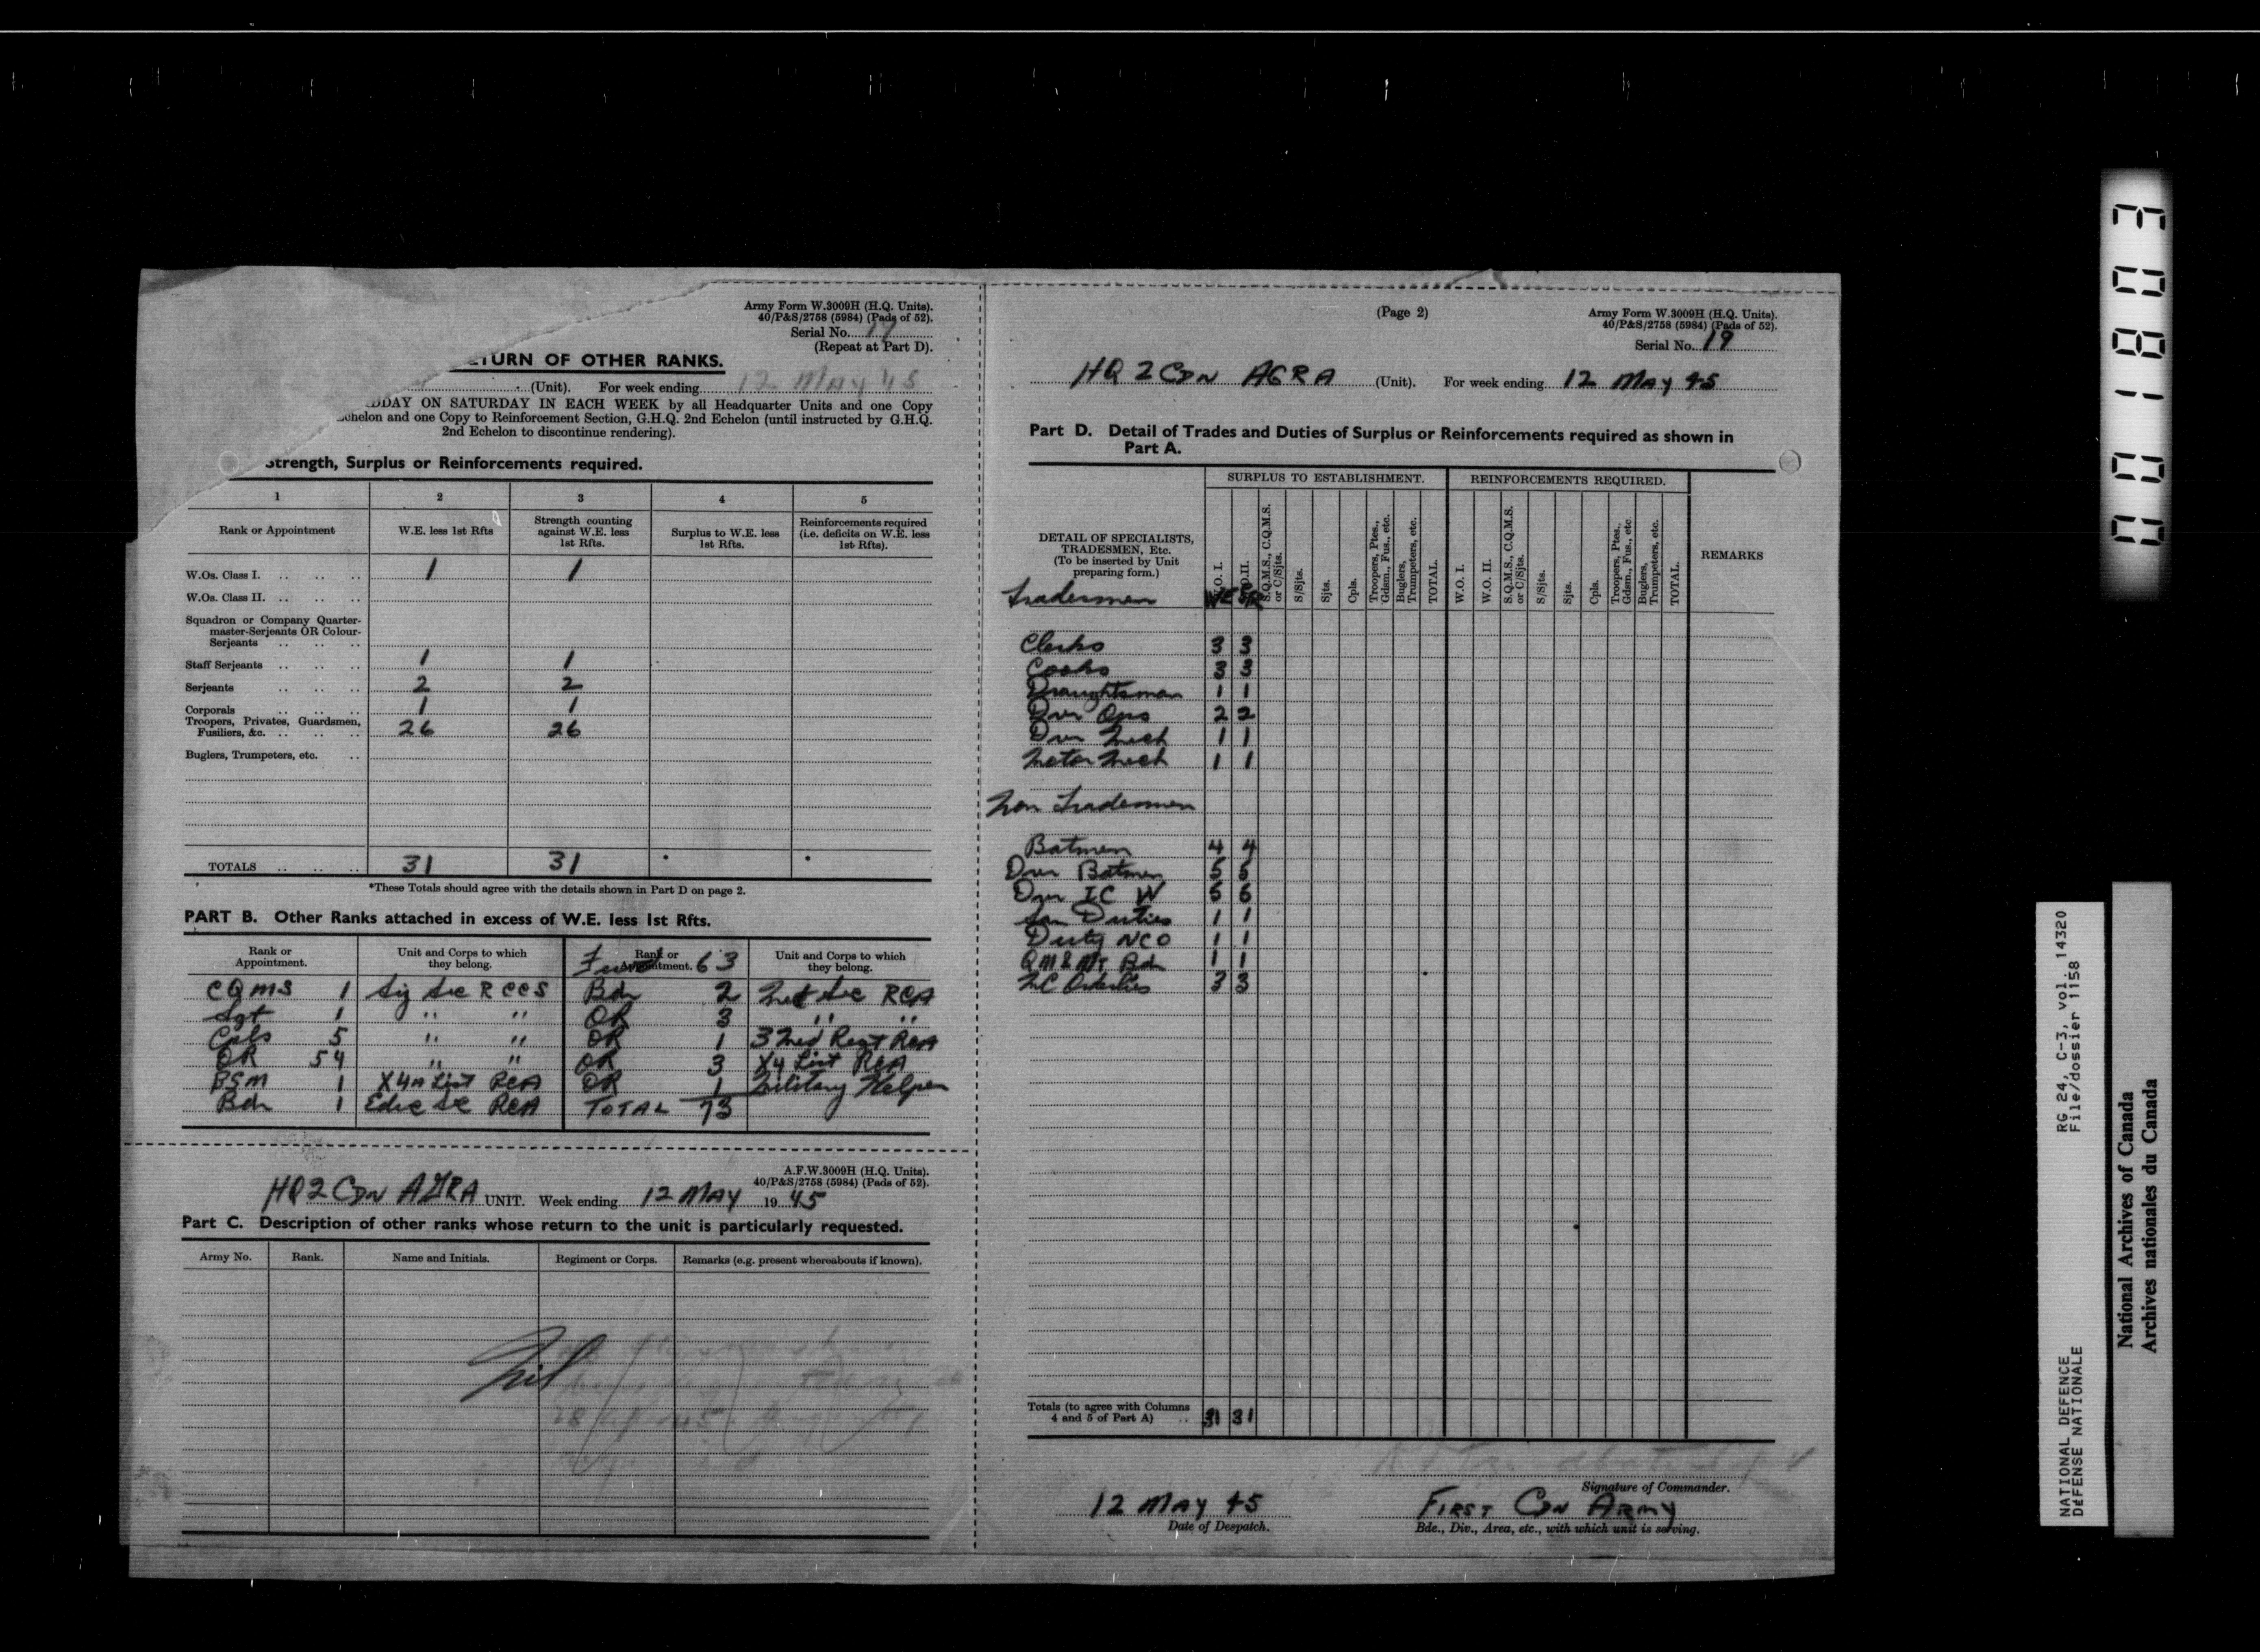 Army Form W.3009H (H.Q. Units).
40/P&S/2758 (5984) (Pads of 52).
Serial No.
(Repeat at Part D).
TURN OF OTHER RANKS.
(Unit). For week ending 12 MAY 45
DAY ON SATURDAY IN EACH WEEK by all Headquarter Units and one Copy
chelon and one Copy to Reinforcement Section, G.H.Q. 2nd Echelon (until instructed by G.H.Q.
2nd Echelon to discontinue rendering).
Strength, Surplus or Reinforcements required.
1 2 3 4 5
Rank or Appointment
W.E. less 1st Rfts
Strength counting against W.E. less 1st Rfts.
Surplus to W.E. less 1st Rfts.
Reinforcements required (i.e. deficits on W.E. less 1st Rfts).
W.Os. Class I. .. .. .. 1 1
W.Os. Class II. .. .. ..
Squadron or Company Quarter-
master-Serjeants OR Colour-
Serjeants .. .. ..
Staff Serjeants .. .. .. 1 1
Serjeants .. .. .. 2 2
Corporals .. .. .. 1 1
Troopers, Privates, Guardsmen,
Fusiliers, &c. .. .. .. 26 26
Buglers, Trumpeters, etc. ..
TOTALS .. .. .. 31 31 * *
*These Totals should agree with the details shown in Part D on page 2.
PART B. Other Ranks attached in excess of W.E. less 1st Rfts.
Rank or Appointment.
Unit and Corps to which they belong.
Rank or Appointment. 63
Unit and Corps to which they belong.
CQMS 1 Sig Sec RCCS Bdr 2 Met Sec RCA
Sgt 1 " " OR 3 " "
Cpls 5 " " OR 1 3 Med Regt RCA
OR 54 " " OR 3 X4 List RCA
BSM 1 X4A List RCA OR 1 Military Helper
Bdr 1 RCA TOTAL 73
A.F.W.3009H (H.Q. Units).
40/P&S/2758 (5984) (Pads of 52).
HQ 2 CDN AGRA UNIT. Week ending 12 MAY 19 45
Part C. Description of other ranks whose return to the unit is particularly requested.
Army No. Rank. Name and Initials. Regiment or Corps. Remarks (e.g. present whereabouts if known).
Nil
(Page 2)
Army Form W.3009H (H.Q. Units).
40/P&S/2758 (5984) (Pads of 52).
Serial No. 19
HQ 2 CDN AGRA (Unit). For week ending 12 MAY 45
Part D. Detail of Trades and Duties of Surplus or Reinforcements required as shown in
Part A.
SURPLUS TO ESTABLISHMENT. REINFORCEMENTS REQUIRED.
DETAIL OF SPECIALISTS,
TRADESMEN, Etc.
(To be inserted by Unit
preparing form.)
W.O. I.
W.O. II.
S.Q.M.S., C.Q.M.S. or C/Sjts.
S/Sjts.
Sjts.
Cpls.
Troopers, Ptes., Gdsm., Fus., etc.
Buglers, Trumpeters, etc.
TOTAL.
W.O. I.
W.O. II.
S.Q.M.S., C.Q.M.S. or C/Sjts.
S/Sjts.
Sjts.
Cpls.
Troopers, Ptes., Gdsm., Fus., etc
Buglers, Trumpeters, etc.
TOTAL.
REMARKS
Tradesmen WE STR
Clerks 3 3
Cooks 3 3
Draughtsman 1 1
Dvr Ops 2 2
Dvr Mech 1 1
Motor Mech 1 1
Non Tradesmen
Batmen 4 4
Dvr Batmen 5 5
Dvr IC W 5 5
San Duties 1 1
Duty NCO 1 1
QM & MT Bdr 1 1
MC Orderlies 3 3
Totals (to agree with Columns
4 and 5 of Part A) .. 31 31
Signature of Commander.
12 MAY 45
Date of Despatch.
FIRST CDN ARMY
Bde., Div., Area, etc., with which unit is serving.
001803
NATIONAL DEFENCE RG 24, C-3, vol. 14320
DéFENSE NATIONALE File/dossier 1158
National Archives of Canada
Archives nationales du Canada